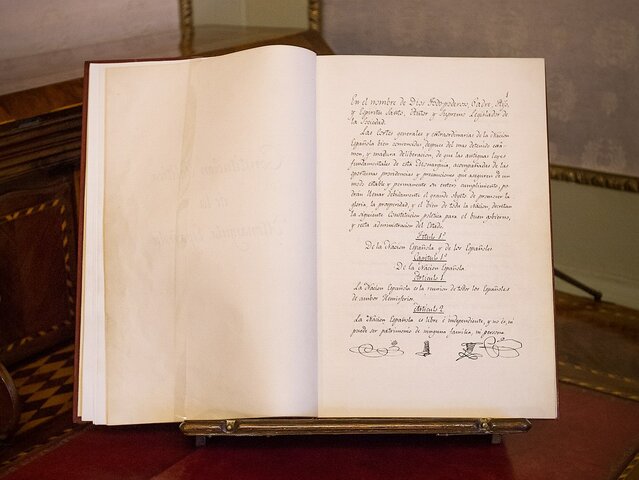 1
En el nombre de Dios Todopoderoso, Padre, Hijo,
y Espíritu Santo, Autor y Supremo Legislador de
la Sociedad.
Las Cortes generales y extraordinarias de la Nacion
Española bien convencidas, despues del mas detenido exâ-
men, y madura deliberacion, de que las antiguas leyes
fundamentales de esta Monarquía, acompañadas de las
oportunas providencias y precauciones, que aseguren de un
modo estable y permanente su entero cumplimiento, po-
drán llenar debidamente el grande objeto de promover la
gloria, la prosperidad, y el bien de toda la Nacion, decretan
la siguiente Constitucion política para el buen gobierno,
y recta administracion del Estado.
Título 1º
De la Nacion Española y de los Españoles.
Capítulo 1º
De la Nacion Española.
Artículo 1.
La Nacion Española es la reunion de todos los Españoles
de ambos hemisferios.
Artículo 2.
La Nacion Española es libre é independiente, y no es, ni
puede ser patrimonio de ninguna familia, ni persona.